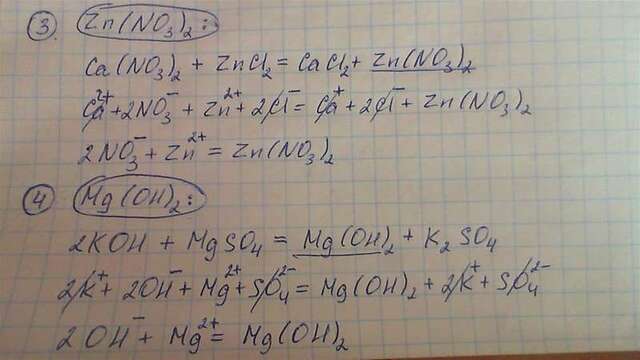 ③ Zn(NO₃)₂:
Ca(NO₃)₂ + ZnCl₂ = CaCl₂ + Zn(NO₃)₂
Ca²⁺ + 2NO₃⁻ + Zn²⁺ + 2Cl⁻ = Ca⁺ + 2Cl⁻ + Zn(NO₃)₂
2NO₃⁻ + Zn²⁺ = Zn(NO₃)₂
④ Mg(OH)₂:
2KOH + MgSO₄ = Mg(OH)₂ + K₂SO₄
2K⁺ + 2OH⁻ + Mg²⁺ + SO₄²⁻ = Mg(OH)₂ + 2K⁺ + SO₄²⁻
2OH⁻ + Mg²⁺ = Mg(OH)₂